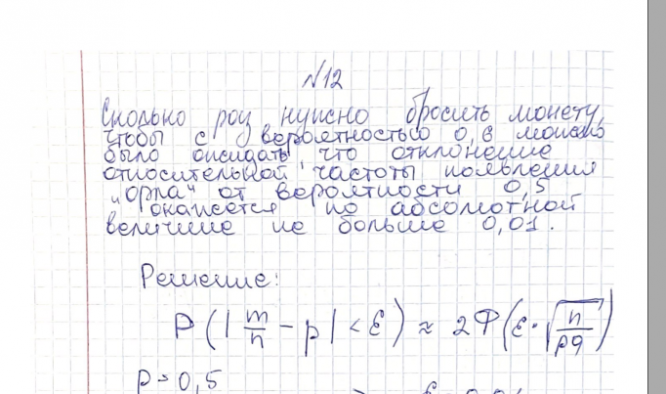 №12
Сколько раз нужно бросить монету,
чтобы с вероятностью 0,6 можно
было ожидать, что отклонение
относительной частоты появления
"орла" от вероятности 0,5
окажется по абсолютной
величине не больше 0,01.
Решение:
P(|m/n - p| < ε) ≈ 2Φ(ε·√(n/pq))
p = 0,5